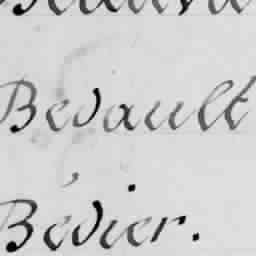 Bedault
Bédier.